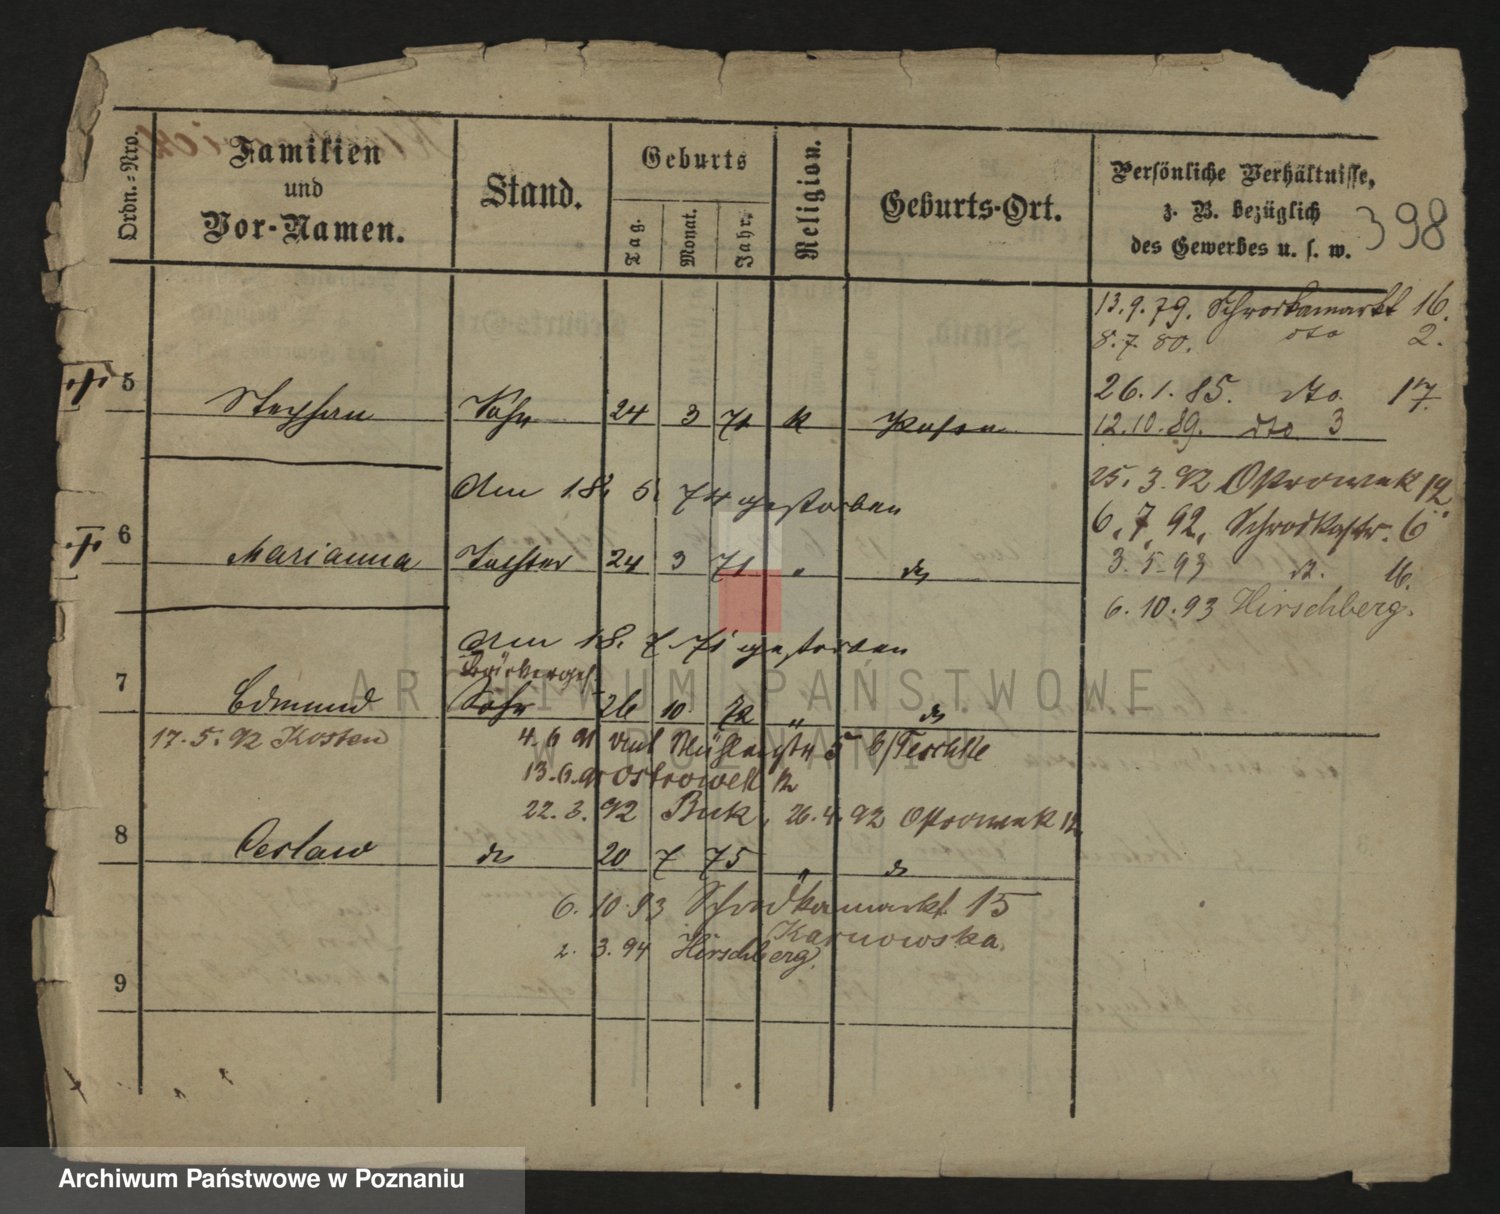 Ordn.-Nro.
Familien
und
Vor-Namen.
Stand.
Geburts
Tag.
Monat.
Jahr.
Religion.
Geburts-Ort.
Persönliche Verhältnisse,
z. B. bezüglich
des Gewerbes u. s. w.
398
13.9.79. Schrodkamarkt 16.
8.7.80. dto 2.
26.1.85. dto 17.
12.10.89. dto 3
5 Stephan Sohn 24 3 71 k Posen
25.3.92 Ostrowek 12
den 18. 5. 74 gestorben
6.7.92. Schrodkastr. 6
6 Marianna Tochter 24 3 71 " do
3.5.93 dt. 16.
6.10.93 Hirschberg.
den 18. 7. 71 gestorben
7 Edmund Sohn 26 10 72 " do
17.5.92 Kosten
4.6.91 Mühlenstr 5 b/Teschke
13.6.91 Ostrowek 12
22.3.92 Buk, 26.4.92 Ostrowek 12
8 Ceslaw do 20 7 75 " do
6.10.93 Schrodkamarkt 15
Karnowska.
2.3.94 Hirschberg.
9
ARCHIWUM PAŃSTWOWE
W POZNANIU
Archiwum Państwowe w Poznaniu